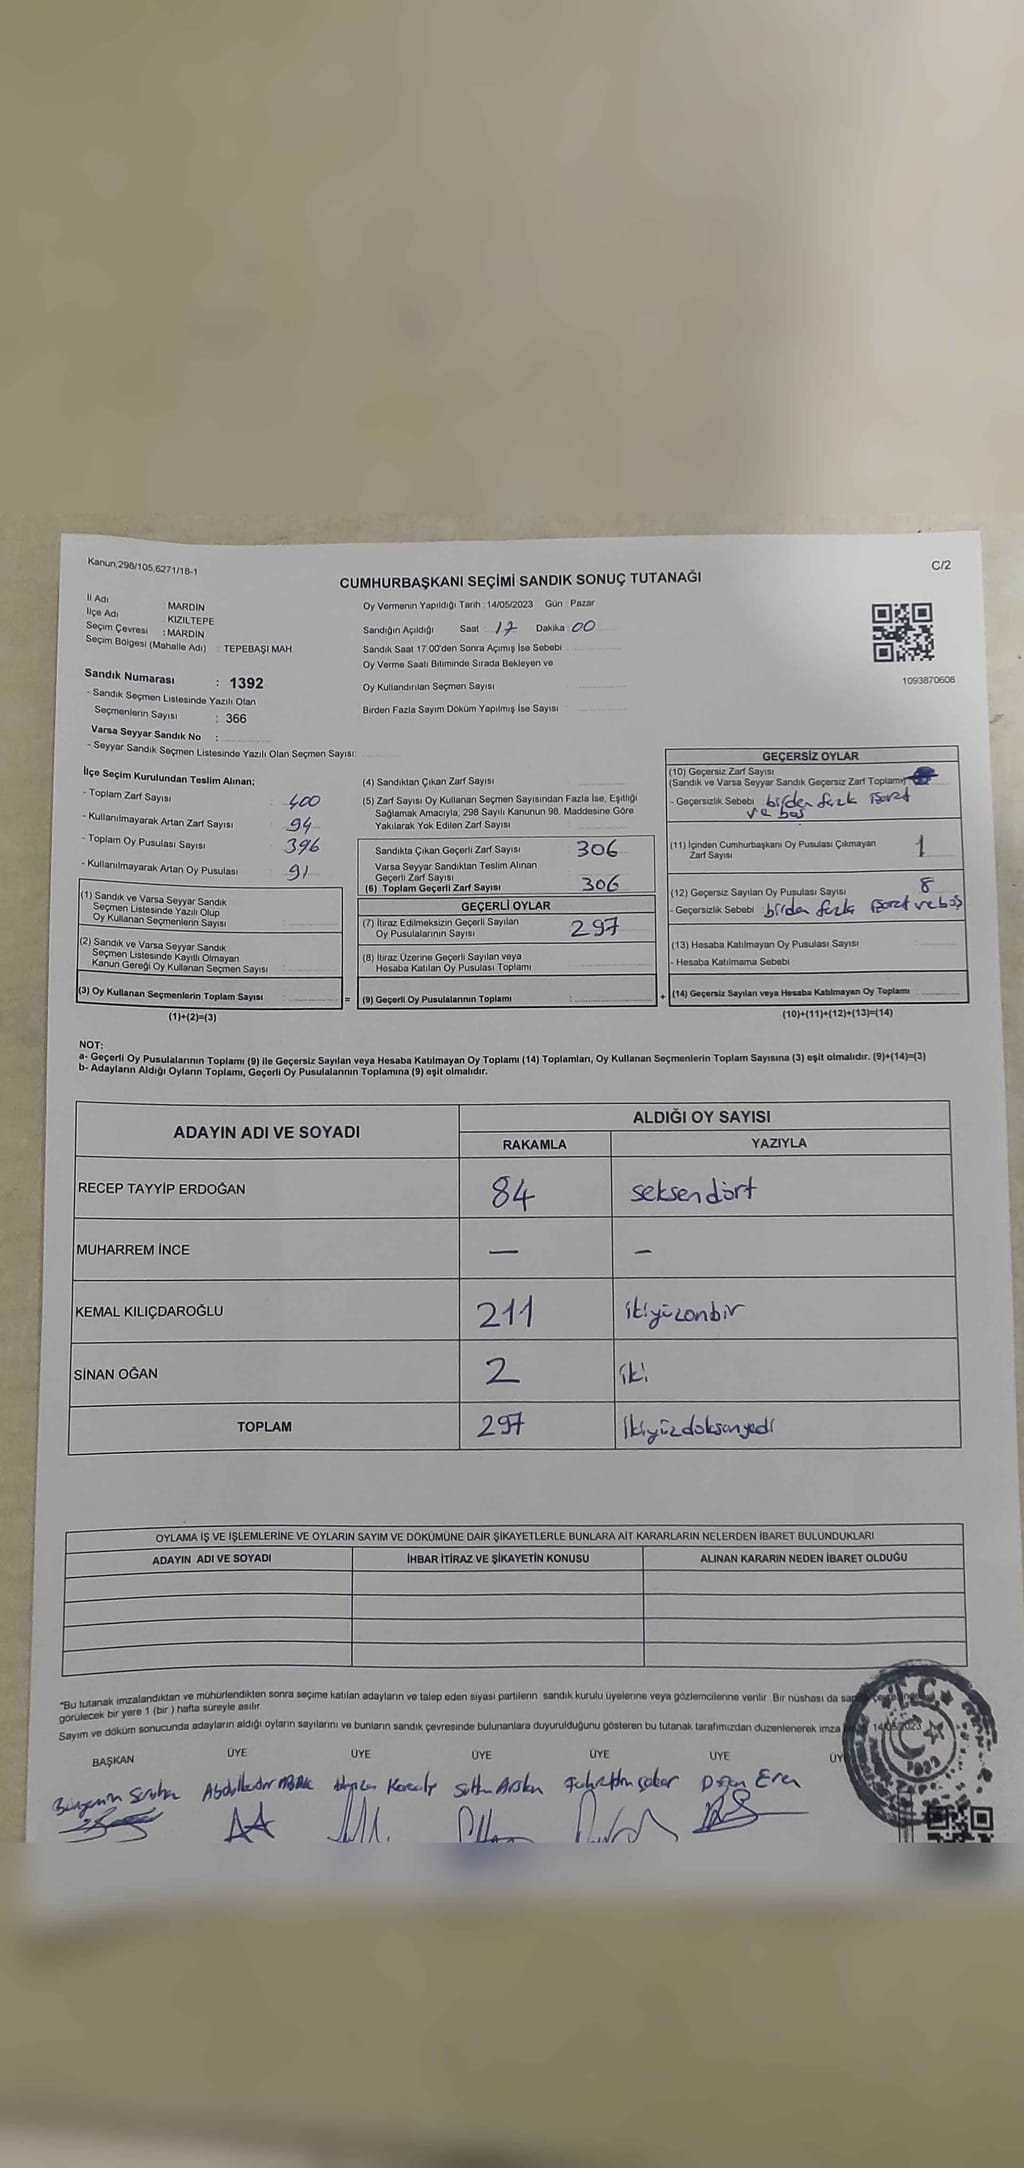 Kanun,298/105,6271/18-1
C/2
CUMHURBAŞKANI SEÇİMİ SANDIK SONUÇ TUTANAĞI
İl Adı MARDİN
İlçe Adı KIZILTEPE
Seçim Çevresi : MARDİN
Seçim Bölgesi (Mahalle Adı) : TEPEBAŞI MAH.
Sandık Numarası : 1392
- Sandık Seçmen Listesinde Yazılı Olan
Seçmenlerin Sayısı : 366
Varsa Seyyar Sandık No :
- Seyyar Sandık Seçmen Listesinde Yazılı Olan Seçmen Sayısı:
Oy Vermenin Yapıldığı Tarih : 14/05/2023 Gün : Pazar
Sandığın Açıldığı Saat : 17 Dakika 00
Sandık Saat 17.00'den Sonra Açımış İse Sebebi
Oy Verme Saati Bitiminde Sırada Bekleyen ve
Oy Kullandırılan Seçmen Sayısı
Birden Fazla Sayım Döküm Yapılmış İse Sayısı
1093870608
İlçe Seçim Kurulundan Teslim Alınan;
- Toplam Zarf Sayısı : 400
- Kullanılmayarak Artan Zarf Sayısı : 94
- Toplam Oy Pusulası Sayısı : 396
- Kullanılmayarak Artan Oy Pusulası : 91
(1) Sandık ve Varsa Seyyar Sandık
Seçmen Listesinde Yazılı Olup
Oy Kullanan Seçmenlerin Sayısı
(2) Sandık ve Varsa Seyyar Sandık
Seçmen Listesinde Kayıtlı Olmayan
Kanun Gereği Oy Kullanan Seçmen Sayısı
(3) Oy Kullanan Seçmenlerin Toplam Sayısı
(1)+(2)=(3)
=
(4) Sandıktan Çıkan Zarf Sayısı
(5) Zarf Sayısı Oy Kullanan Seçmen Sayısından Fazla İse, Eşitliği
Sağlamak Amacıyla, 298 Sayılı Kanunun 98. Maddesine Göre
Yakılarak Yok Edilen Zarf Sayısı
Sandıkta Çıkan Geçerli Zarf Sayısı 306
Varsa Seyyar Sandıktan Teslim Alınan
Geçerli Zarf Sayısı
(6) Toplam Geçerli Zarf Sayısı 306
GEÇERLİ OYLAR
(7) İtiraz Edilmeksizin Geçerli Sayılan
Oy Pusulalarının Sayısı 297
(8) İtiraz Üzerine Geçerli Sayılan veya
Hesaba Katılan Oy Pusulası Toplamı
(9) Geçerli Oy Pusulalarının Toplamı
+
GEÇERSİZ OYLAR
(10) Geçersiz Zarf Sayısı
(Sandık ve Varsa Seyyar Sandık Geçersiz Zarf Toplamı)
- Geçersizlik Sebebi birden fazla işaret
ve boş
(11) İçinden Cumhurbaşkanı Oy Pusulası Çıkmayan
Zarf Sayısı 1
(12) Geçersiz Sayılan Oy Pusulası Sayısı 8
- Geçersizlik Sebebi birden fazla işaret ve boş
(13) Hesaba Katılmayan Oy Pusulası Sayısı
- Hesaba Katılmama Sebebi
(14) Geçersiz Sayılan veya Hesaba Katılmayan Oy Toplamı
(10)+(11)+(12)+(13)=(14)
NOT:
a- Geçerli Oy Pusulalarının Toplamı (9) ile Geçersiz Sayılan veya Hesaba Katılmayan Oy Toplamı (14) Toplamları, Oy Kullanan Seçmenlerin Toplam Sayısına (3) eşit olmalıdır. (9)+(14)=(3)
b- Adayların Aldığı Oyların Toplamı, Geçerli Oy Pusulalarının Toplamına (9) eşit olmalıdır.
ADAYIN ADI VE SOYADI ALDIĞI OY SAYISI
RAKAMLA YAZIYLA
RECEP TAYYİP ERDOĞAN 84 seksendört
MUHARREM İNCE — –
KEMAL KILIÇDAROĞLU 211 ikiyüzonbir
SİNAN OĞAN 2 iki
TOPLAM 297 ikiyüzdoksanyedi
OYLAMA İŞ VE İŞLEMLERİNE VE OYLARIN SAYIM VE DÖKÜMÜNE DAİR ŞİKAYETLERLE BUNLARA AİT KARARLARIN NELERDEN İBARET BULUNDUKLARI
ADAYIN ADI VE SOYADI İHBAR İTİRAZ VE ŞİKAYETİN KONUSU ALINAN KARARIN NEDEN İBARET OLDUĞU
"Bu tutanak imzalandıktan ve mühürlendikten sonra seçime katılan adayların ve talep eden siyasi partilerin sandık kurulu üyelerine veya gözlemcilerine verilir. Bir nüshası da
görülecek bir yere 1 (bir ) hafta süreyle asılır.
Sayım ve döküm sonucunda adayların aldığı oyların sayılarını ve bunların sandık çevresinde bulunanlara duyurulduğunu gösteren bu tutanak tarafımızdan düzenlenerek imza 14/05/2023
BAŞKAN ÜYE ÜYE ÜYE ÜYE ÜYE ÜY
T.C.